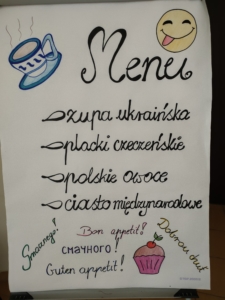 Menu
zupa ukraińska
placki czeczeńskie
polskie owoce
ciasto międzynarodowe
Smacznego!
Bon appetit!
Dobrou chuť
смачного!
Guten appetit!